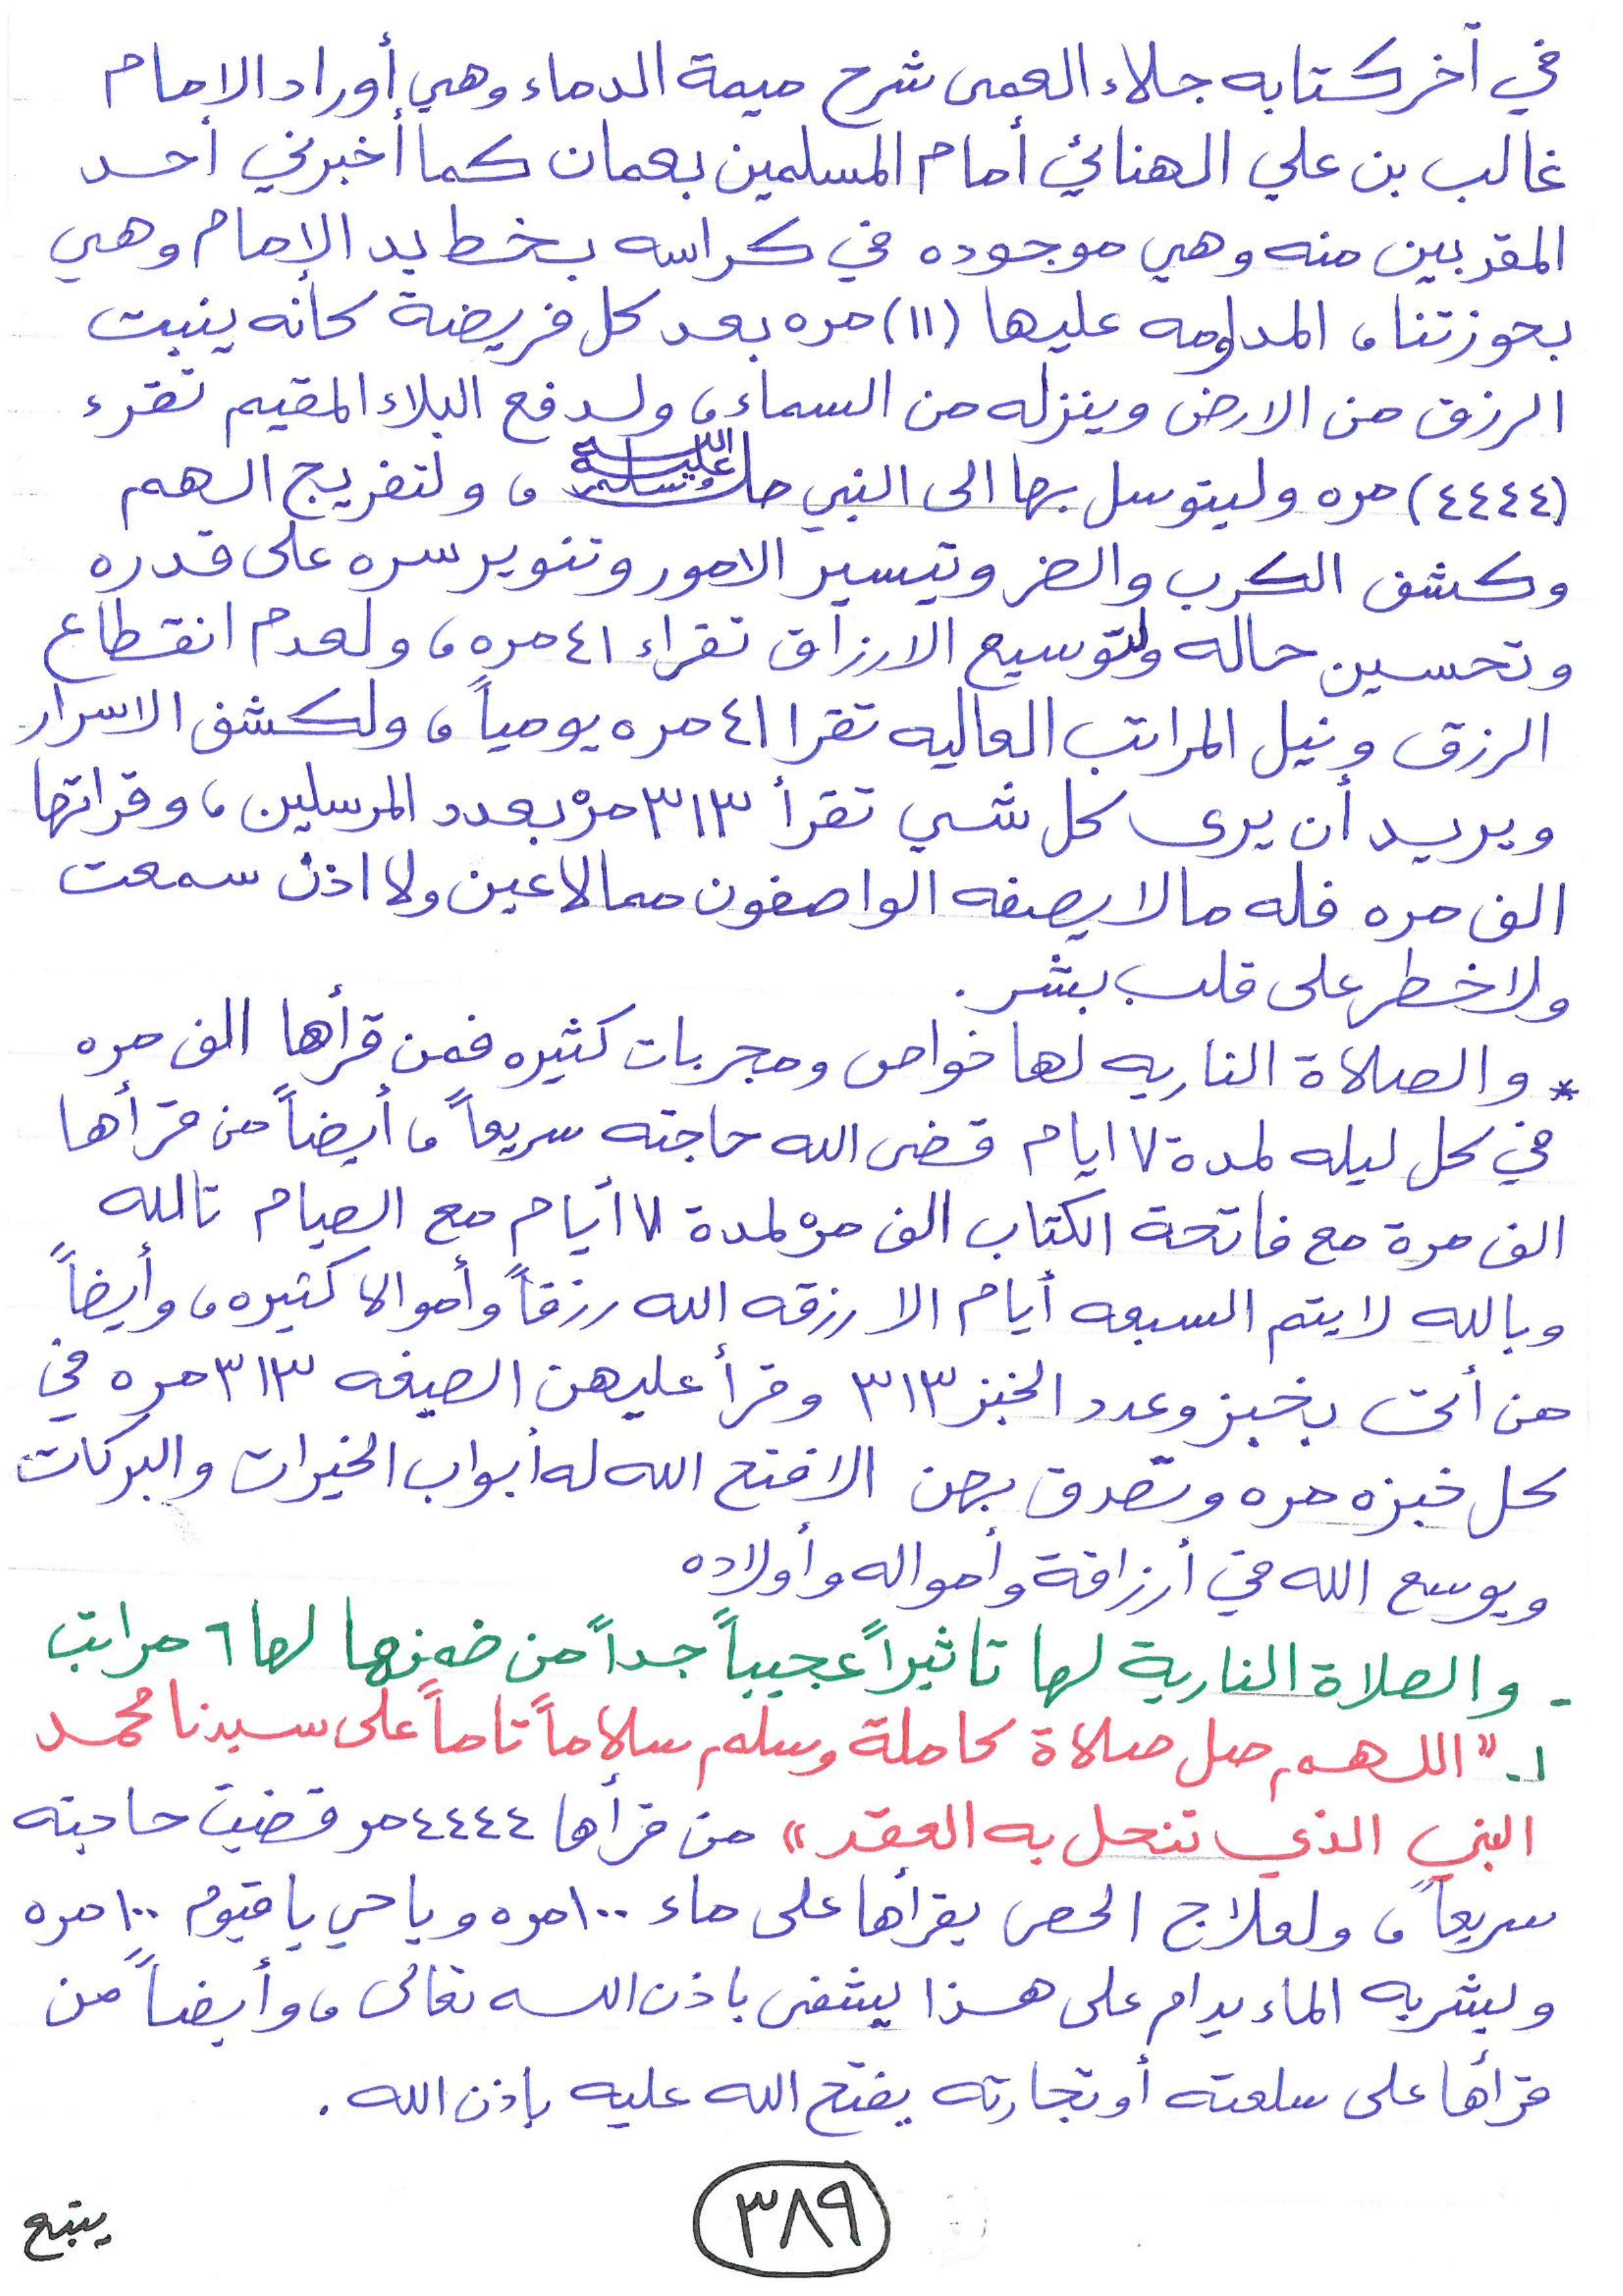 في آخر كتابه جلاء العمى شرح ميمة الدماء وهي أوراد الامام
غالب بن علي الهنائي أمام المسلمين بعمان كما أخبرني أحد
المقربين منه وهي موجوده في كراسه بخط يد الإمام وهي
بحوزتنا، المداومه عليها (١١) مره بعد كل فريضة كأنه ينبت
الرزق من الارض وينزله من السماء، ولدفع البلاء المقيم تقرء
(٤٤٤٤) مره وليتوسل بها الى النبي صلى الله عليه وسلم، ولتفريج الهم
وكشف الكرب والضر وتيسير الامور وتنوير سره على قدره
وتحسين حاله ولتوسيع الارزاق تقراء ٤١ مره، ولعدم انقطاع
الرزق ونيل المراتب العاليه تقرا ٤١ مره يومياً، ولكشف الاسرار
ويريد أن يرى كل شي تقرأ ٣١٣ مرة بعدد المرسلين، وقراتها
الف مره فله مالا يصفه الواصفون مما لا عين ولا اذن سمعت
ولا خطر على قلب بشر.
* والصلاة الناريه لها خواص ومجربات كثيره فمن قرأها الف مره
في كل ليله لمدة ٧ ايام قضى الله حاجته سريعاً، أيضاً من قرأها
الف مرة مع فاتحة الكتاب الف مرة لمدة ٧ أيام مع الصيام تالله
وبالله لا يتم السبعه أيام الا رزقه الله رزقاً وأموالا كثيره، وأيضاً
من أتى بخبز وعدد الخبز ٣١٣ وقرأ عليهن الصيغه ٣١٣ مره في
كل خبزه مره وتصدق بهن الا فتح الله له أبواب الخيرات والبركات
ويوسع الله في أرزاقة وأمواله وأولاده
- والصلاة النارية لها تاثيراً عجيباً جداً من ضمنها لها ٦ مراتب
١- "اللهم صل صلاة كاملة وسلم سلاماً تاماً على سيدنا محمد
النبي الذي تنحل به العقد" من قرأها ٤٤٤٤ مر قضيت حاجته
سريعاً، ولعلاج الحصى يقرأها على ماء ١٠٠ مره وياحي ياقيوم ١٠٠ مره
وليشربه الماء يدام على هذا ليشفى باذن الله تعالى، وأيضاً من
قرأها على سلعته أو تجارته يفتح الله عليه بإذن الله.
٣٨٩
يتبع